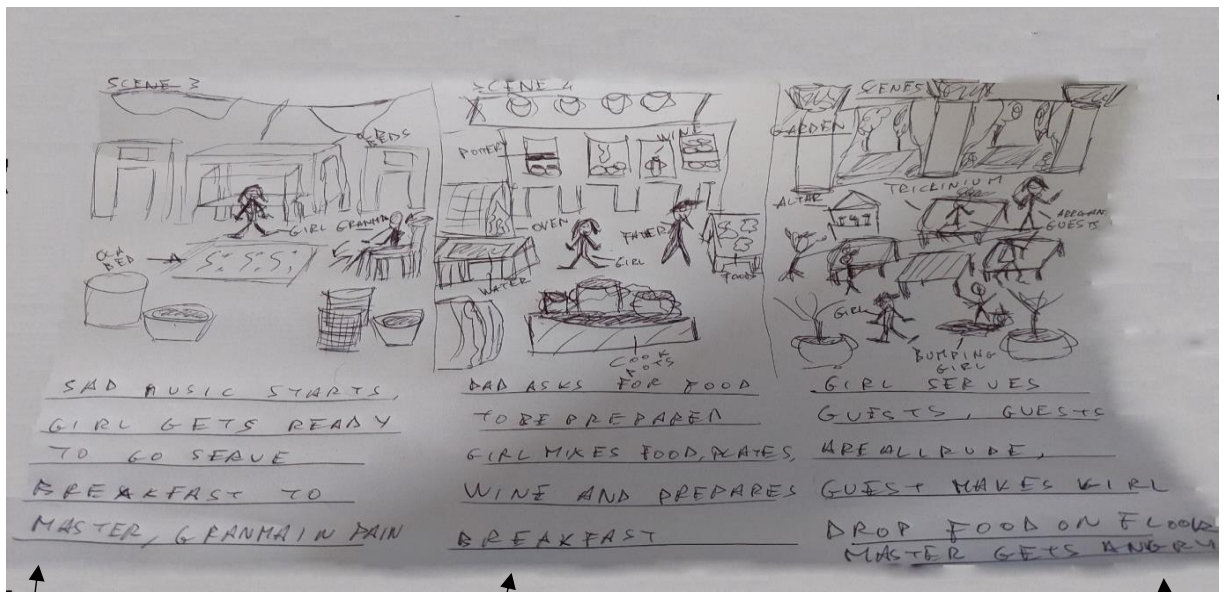 SCENE 3
BEDS
GIRL GRANMA
OLD
BED
SAD MUSIC STARTS,
GIRL GETS READY
TO GO SERVE
BREAKFAST TO
MASTER, GRANMA IN PAIN
SCENE 4
POTTERY
WINE
OVEN
FATER
GIRL
WATER
FOODS
COOK
POTS
DAD ASKS FOR FOOD
TO BE PREPARED
GIRL MIXES FOOD, PLATES,
WINE AND PREPARES
BREAKFAST
SCENE 5
GARDEN
TRICKINIUM
ALTAR
ARROGAN
GUESTS
GIRL
BUMPING
GIRL
GIRL SERVES
GUESTS, GUESTS
ARE ALL RUDE,
GUEST MAKES KIRL
DROP FOOD ON FLOOR
MASTER GETS ANGRY